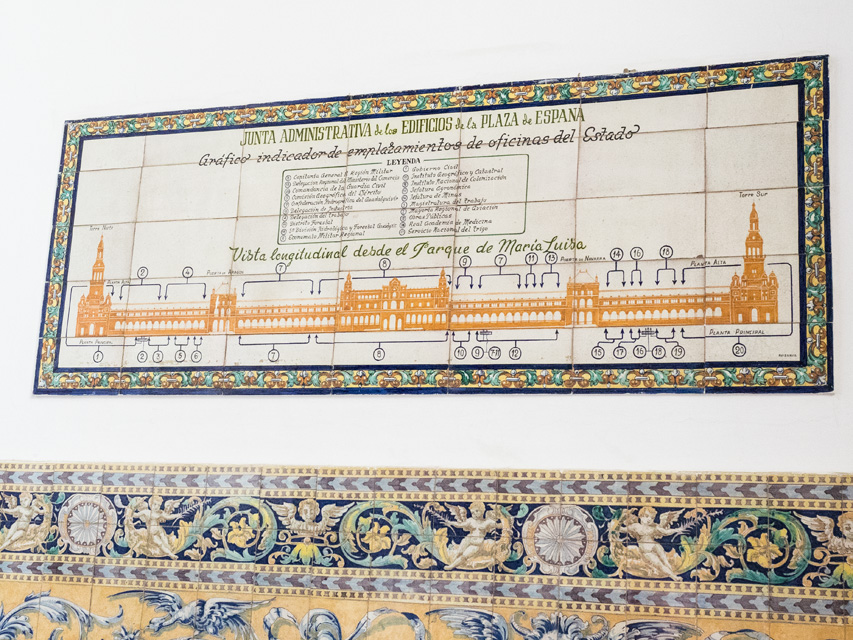 JUNTA ADMINISTRATIVA de los EDIFICIOS de la PLAZA de ESPAÑA
Gráfico indicador de emplazamientos de oficinas del Estado
LEYENDA
Capitanía General II Región Militar
Delegación Regional del Ministerio del Comercio
Comandancia de la Guardia Civil
Comisión Geográfica del Ejército
Confederación Hidrográfica del Guadalquivir
Delegación de Industria
Delegación del Trabajo
Distrito Forestal
División Hidrológico Forestal
Gobierno Militar Regional
Gobierno Civil
Instituto Geográfico y Catastral
Instituto Nacional de Colonización
Jefatura Agronómica
Jefatura de Minas
Magistratura del Trabajo
Mayoría Regional de Aviación
Obras Públicas
Real Academia de Medicina
Servicio Nacional del Trigo
Vista longitudinal desde el Parque de María Luisa
Torre Norte
Torre Sur
PLANTA ALTA
2
4
PUERTA DE ARAGÓN
7
8
9
7
11
13
PUERTA DE NAVARRA
14
16
18
PLANTA ALTA
PLANTA PRINCIPAL
PLANTA PRINCIPAL
1
2
3
5
6
7
8
10
9
12
15
17
16
18
19
20